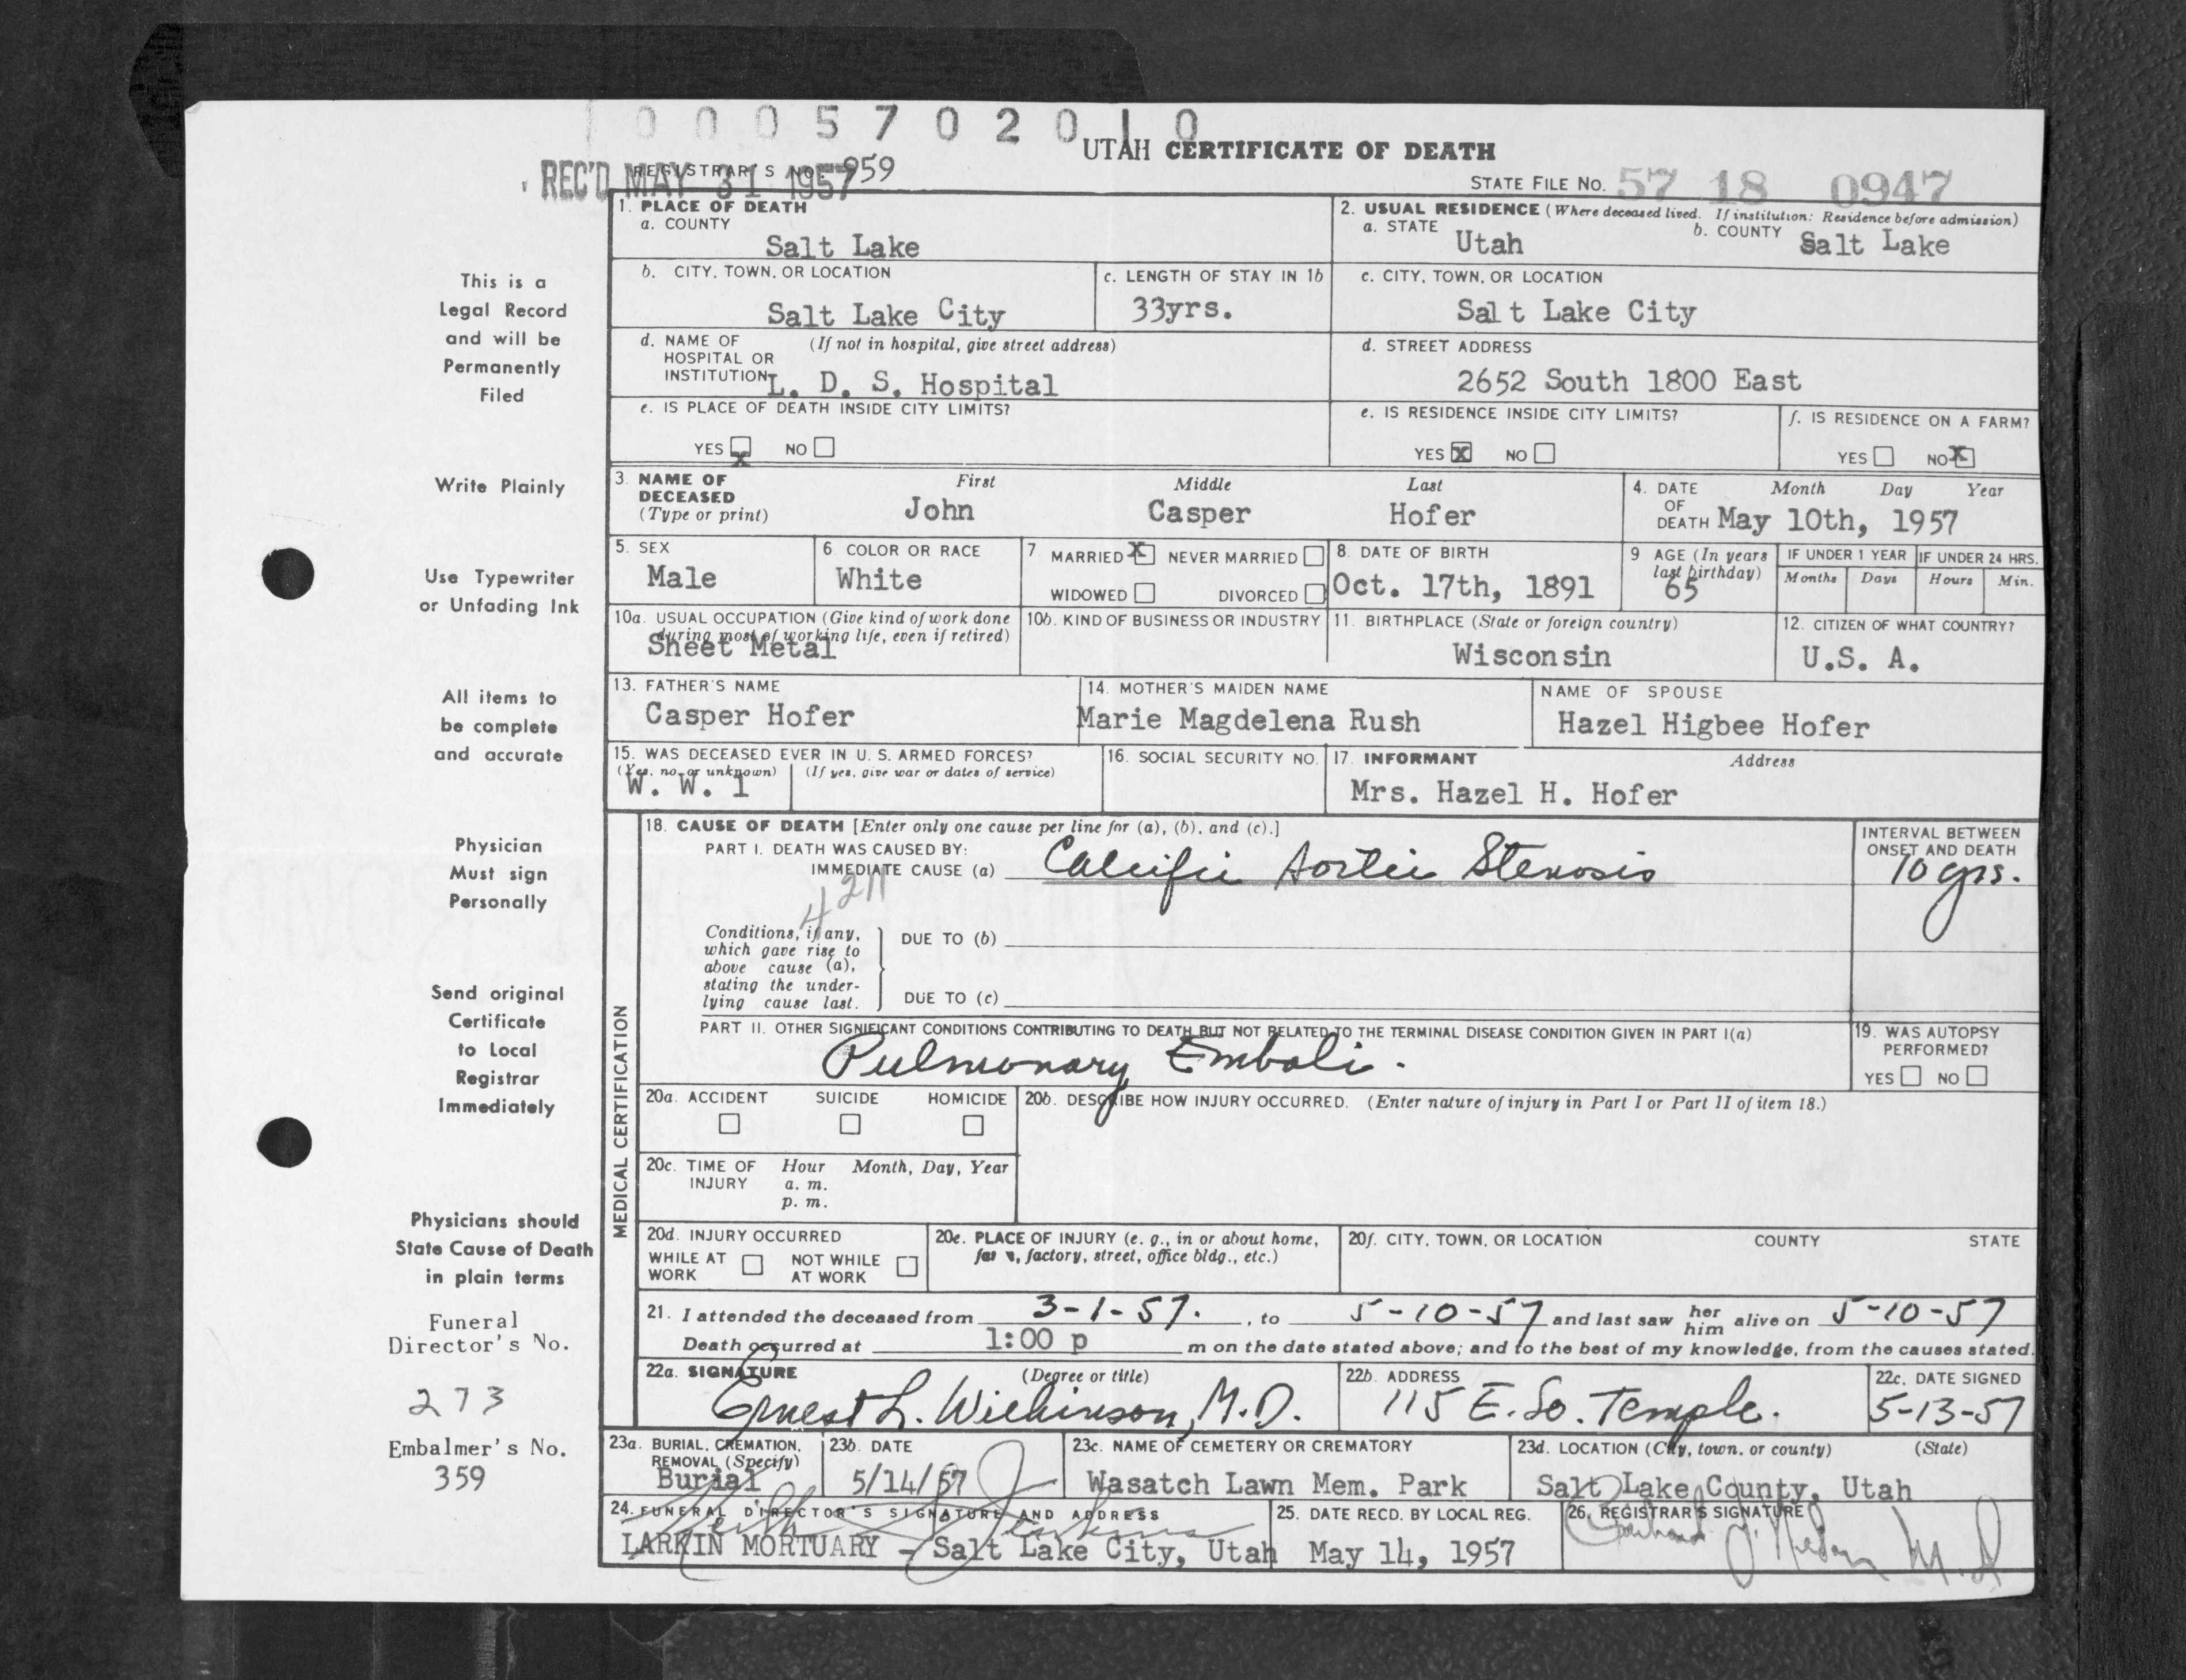 1 0 0 0 5 7 0 2 0 1 0
UTAH CERTIFICATE OF DEATH
REGISTRAR'S NO. 959
REC'D MAY 31 1957
STATE FILE NO. 57 18 0947
1. PLACE OF DEATH
a. COUNTY
Salt Lake
2. USUAL RESIDENCE (Where deceased lived. If institution: Residence before admission)
a. STATE Utah b. COUNTY Salt Lake
b. CITY, TOWN, OR LOCATION
Salt Lake City
c. LENGTH OF STAY IN 1b
33yrs.
c. CITY, TOWN, OR LOCATION
Salt Lake City
d. NAME OF HOSPITAL OR INSTITUTION (If not in hospital, give street address)
L. D. S. Hospital
d. STREET ADDRESS
2652 South 1800 East
e. IS PLACE OF DEATH INSIDE CITY LIMITS?
YES X NO
e. IS RESIDENCE INSIDE CITY LIMITS?
YES X NO
f. IS RESIDENCE ON A FARM?
YES NO X
3. NAME OF DECEASED (Type or print)
First Middle Last
John Casper Hofer
4. DATE OF DEATH Month Day Year
May 10th, 1957
5. SEX
Male
6. COLOR OR RACE
White
7. MARRIED X NEVER MARRIED
WIDOWED DIVORCED
8. DATE OF BIRTH
Oct. 17th, 1891
9 AGE (In years last birthday)
65
IF UNDER 1 YEAR
Months Days
IF UNDER 24 HRS.
Hours Min.
10a. USUAL OCCUPATION (Give kind of work done during most of working life, even if retired)
Sheet Metal
10b. KIND OF BUSINESS OR INDUSTRY
11. BIRTHPLACE (State or foreign country)
Wisconsin
12. CITIZEN OF WHAT COUNTRY?
U.S. A.
13. FATHER'S NAME
Casper Hofer
14. MOTHER'S MAIDEN NAME
Marie Magdelena Rush
NAME OF SPOUSE
Hazel Higbee Hofer
15. WAS DECEASED EVER IN U. S. ARMED FORCES?
(Yes, no, or unknown) (If yes, give war or dates of service)
W. W. 1
16. SOCIAL SECURITY NO.
17. INFORMANT Address
Mrs. Hazel H. Hofer
MEDICAL CERTIFICATION
18. CAUSE OF DEATH [Enter only one cause per line for (a), (b), and (c).]
PART I. DEATH WAS CAUSED BY:
IMMEDIATE CAUSE (a) Calcific Aortic Stenosis
INTERVAL BETWEEN ONSET AND DEATH
10 yrs.
4211
Conditions, if any, which gave rise to above cause (a), stating the underlying cause last.
DUE TO (b)
DUE TO (c)
PART II. OTHER SIGNIFICANT CONDITIONS CONTRIBUTING TO DEATH BUT NOT RELATED TO THE TERMINAL DISEASE CONDITION GIVEN IN PART I(a)
Pulmonary Emboli.
19. WAS AUTOPSY PERFORMED?
YES NO
20a. ACCIDENT SUICIDE HOMICIDE
20b. DESCRIBE HOW INJURY OCCURRED. (Enter nature of injury in Part I or Part II of item 18.)
20c. TIME OF INJURY Hour Month, Day, Year
a. m.
p. m.
20d. INJURY OCCURRED
WHILE AT WORK NOT WHILE AT WORK
20e. PLACE OF INJURY (e. g., in or about home, farm, factory, street, office bldg., etc.)
20f. CITY, TOWN, OR LOCATION COUNTY STATE
21. I attended the deceased from 3-1-57. , to 5-10-57 and last saw her him alive on 5-10-57
Death occurred at 1:00 p m on the date stated above; and to the best of my knowledge, from the causes stated.
22a. SIGNATURE (Degree or title)
Ernest L. Wilkinson, M.D.
22b. ADDRESS
115 E. So. Temple.
22c. DATE SIGNED
5-13-57
23a. BURIAL, CREMATION, REMOVAL (Specify)
Burial
23b. DATE
5/14/57
23c. NAME OF CEMETERY OR CREMATORY
Wasatch Lawn Mem. Park
23d. LOCATION (City, town, or county) (State)
Salt Lake County, Utah
24. FUNERAL DIRECTOR'S SIGNATURE AND ADDRESS
LARKIN MORTUARY - Salt Lake City, Utah
25. DATE RECD. BY LOCAL REG.
May 14, 1957
26. REGISTRAR'S SIGNATURE
M.D
This is a
Legal Record
and will be
Permanently
Filed
Write Plainly
Use Typewriter
or Unfading Ink
All items to
be complete
and accurate
Physician
Must sign
Personally
Send original
Certificate
to Local
Registrar
Immediately
Physicians should
State Cause of Death
in plain terms
Funeral
Director's No.
273
Embalmer's No.
359